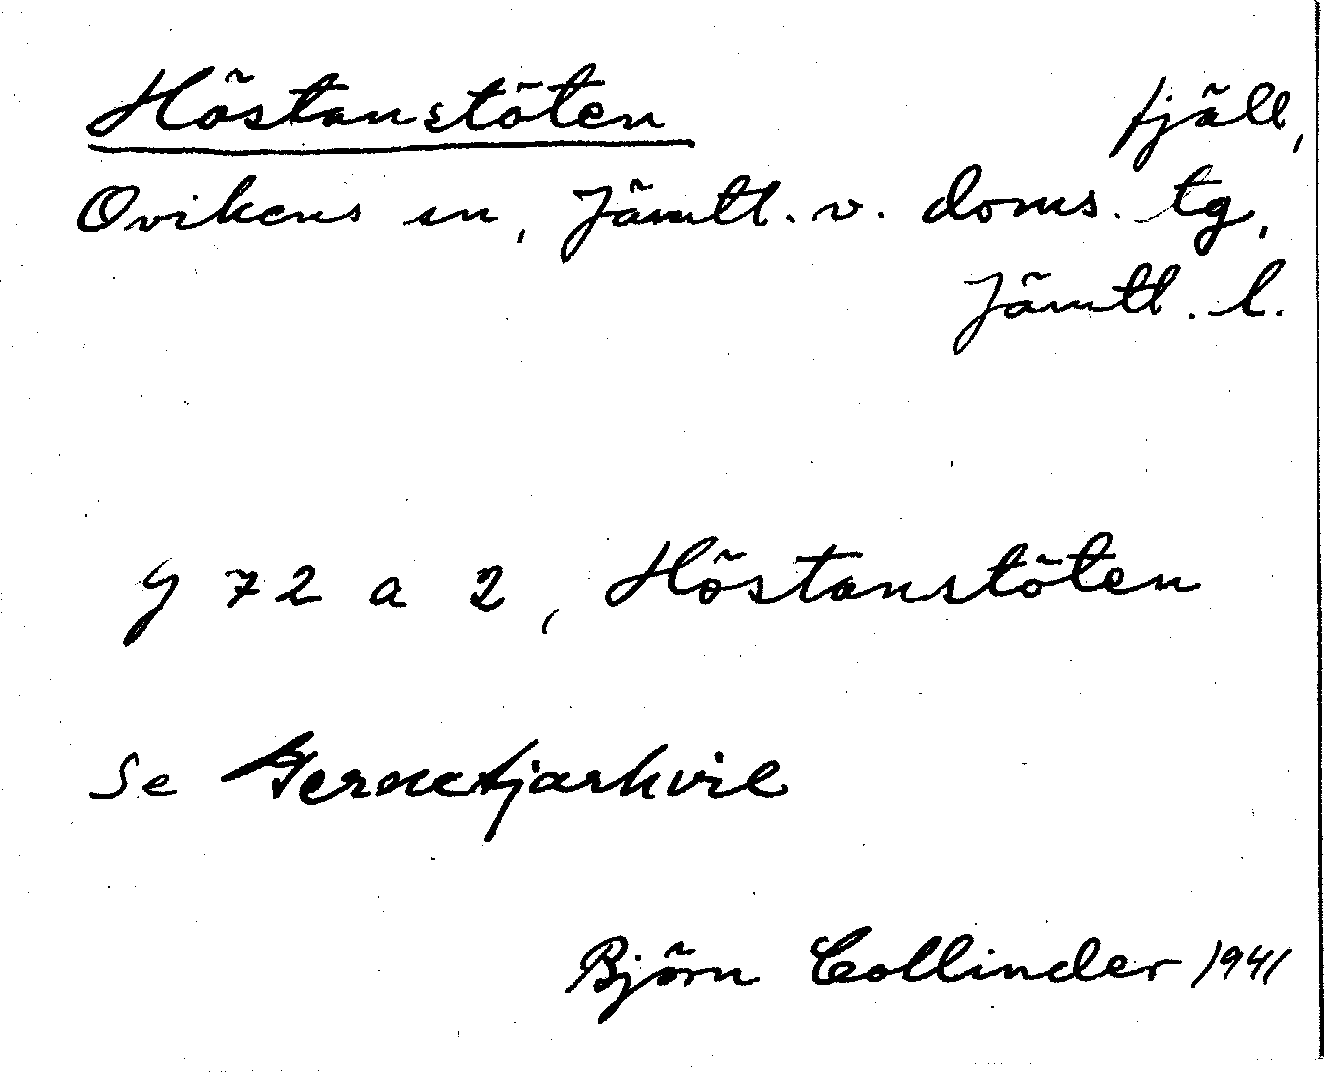 Höstanstöten fjäll,
Ovikens sn, Jämtl. v. doms. tg,
Jämtl. l.
72 a 2, Höstanstöten
Se
Björn Collinder 1941